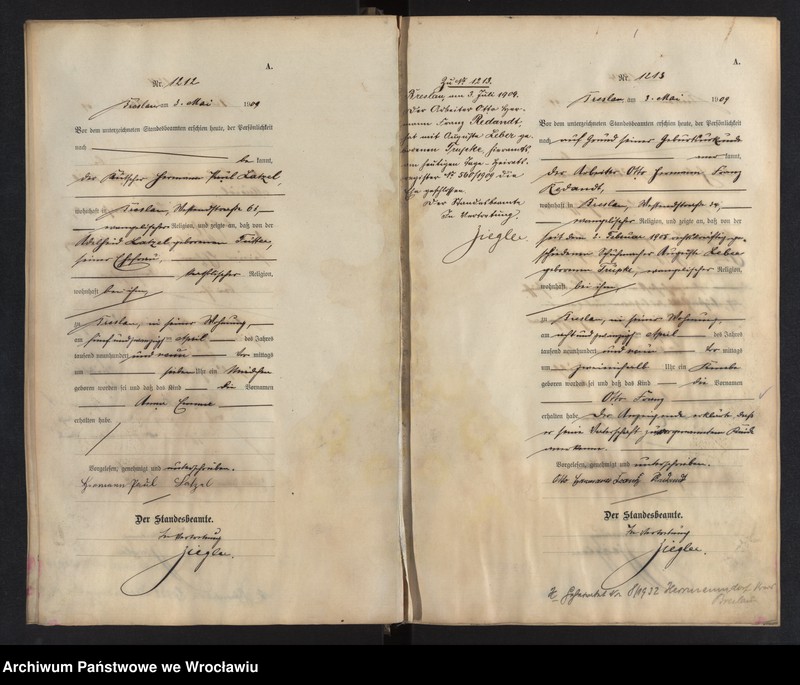 A.
Nr. 1212
Breslau am 3. Mai 1909
Vor dem unterzeichneten Standesbeamten erschien heute, der Persönlichkeit
nach
be kannt,
der Kutscher Hermann Paul Latzel,
wohnhaft in Breslau, Westendstraße 61,
evangelischer Religion, und zeigte an, daß von der
Adelheid Latzel geborenen
seiner Ehefrau,
katholischer Religion,
wohnhaft bei ihm,
zu Breslau, in seiner Wohnung,
am fünfundzwanzigsten April des Jahres
tausend neunhundert und neun vor mittags
um sieben Uhr ein Mädchen
geboren worden sei und daß das Kind die Vornamen
Anna Emma
erhalten habe.
Vorgelesen, genehmigt und unterschrieben.
Hermann Paul Latzel
Der Standesbeamte.
In Vertretung
Ziegler.
Zu Nr. 1213.
Breslau, am 3. Juli 1909.
Der Arbeiter Otto Her-
mann Franz Redandt,
hat mit Auguste Leber ge-
borenen Trupke, hieramts
am heutigen Tage – Heirats-
register Nr. 560/1909 die
Ehe geschlossen.
Der Standesbeamte
In Vertretung.
Ziegler.
A.
Nr. 1213
Breslau am 3. Mai 1909
Vor dem unterzeichneten Standesbeamten erschien heute, der Persönlichkeit
nach auf Grund seiner Geburtsurkunde
aner kannt,
der Arbeiter Otto Hermann Franz
Redandt,
wohnhaft in Breslau, Westendstraße 14,
evangelischer Religion, und zeigte an, daß von der
seit dem 2. Februar 1908 rechtskräftig ge-
schiedenen Schuhmacher Auguste Leber
geborenen Trupke, evangelischer Religion,
wohnhaft bei ihm,
zu Breslau, in seiner Wohnung,
am achtundzwanzigsten April des Jahres
tausend neunhundert und neun vor mittags
um zweieinhalb Uhr ein Knabe
geboren worden sei und daß das Kind die Vornamen
Otto Franz
erhalten habe. Der Anzeigende erklärte, daß
er seine Vaterschaft zu vorgenanntem Kinde
anerkenne.
Vorgelesen, genehmigt und unterschrieben.
Otto Hermann Franz Redandt
Der Standesbeamte.
In Vertretung
Ziegler.
8/1932 Hermannsdorf Kreis
Breslau
Archiwum Państwowe we Wrocławiu